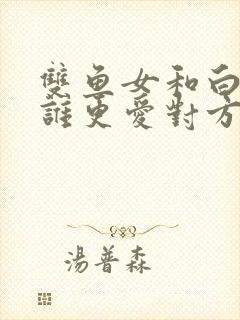 雙魚女和白
誰更愛對方
湯普森